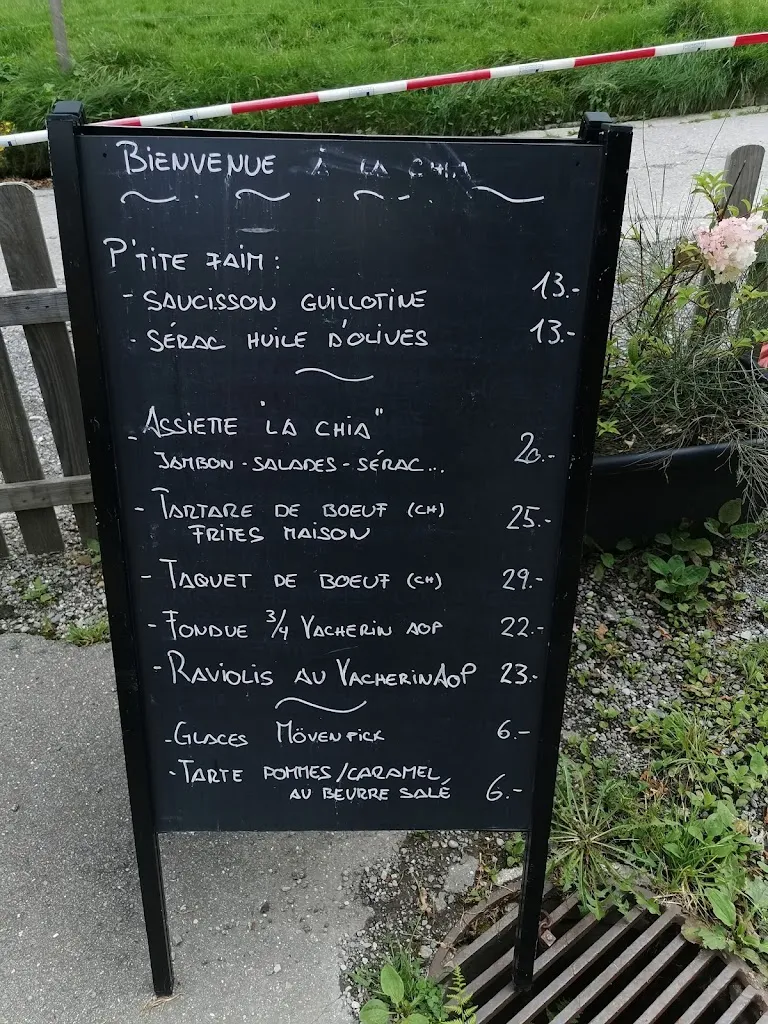 BIENVENUE À LA CHIA
P'TITE FAIM :
- SAUCISSON GUILLOTINE 13.-
- SÉRAC HUILE D'OLIVES 13.-
- ASSIETTE "LA CHIA"
JAMBON - SALADES - SÉRAC... 20.-
- TARTARE DE BOEUF (CH)
FRITES MAISON 25.-
- TAQUET DE BOEUF (CH) 29.-
- FONDUE 3/4 VACHERIN AOP 22.-
- RAVIOLIS AU VACHERIN AOP 23.-
- GLACES MÖVENPICK 6.-
- TARTE POMMES/CARAMEL
AU BEURRE SALÉ 6.-